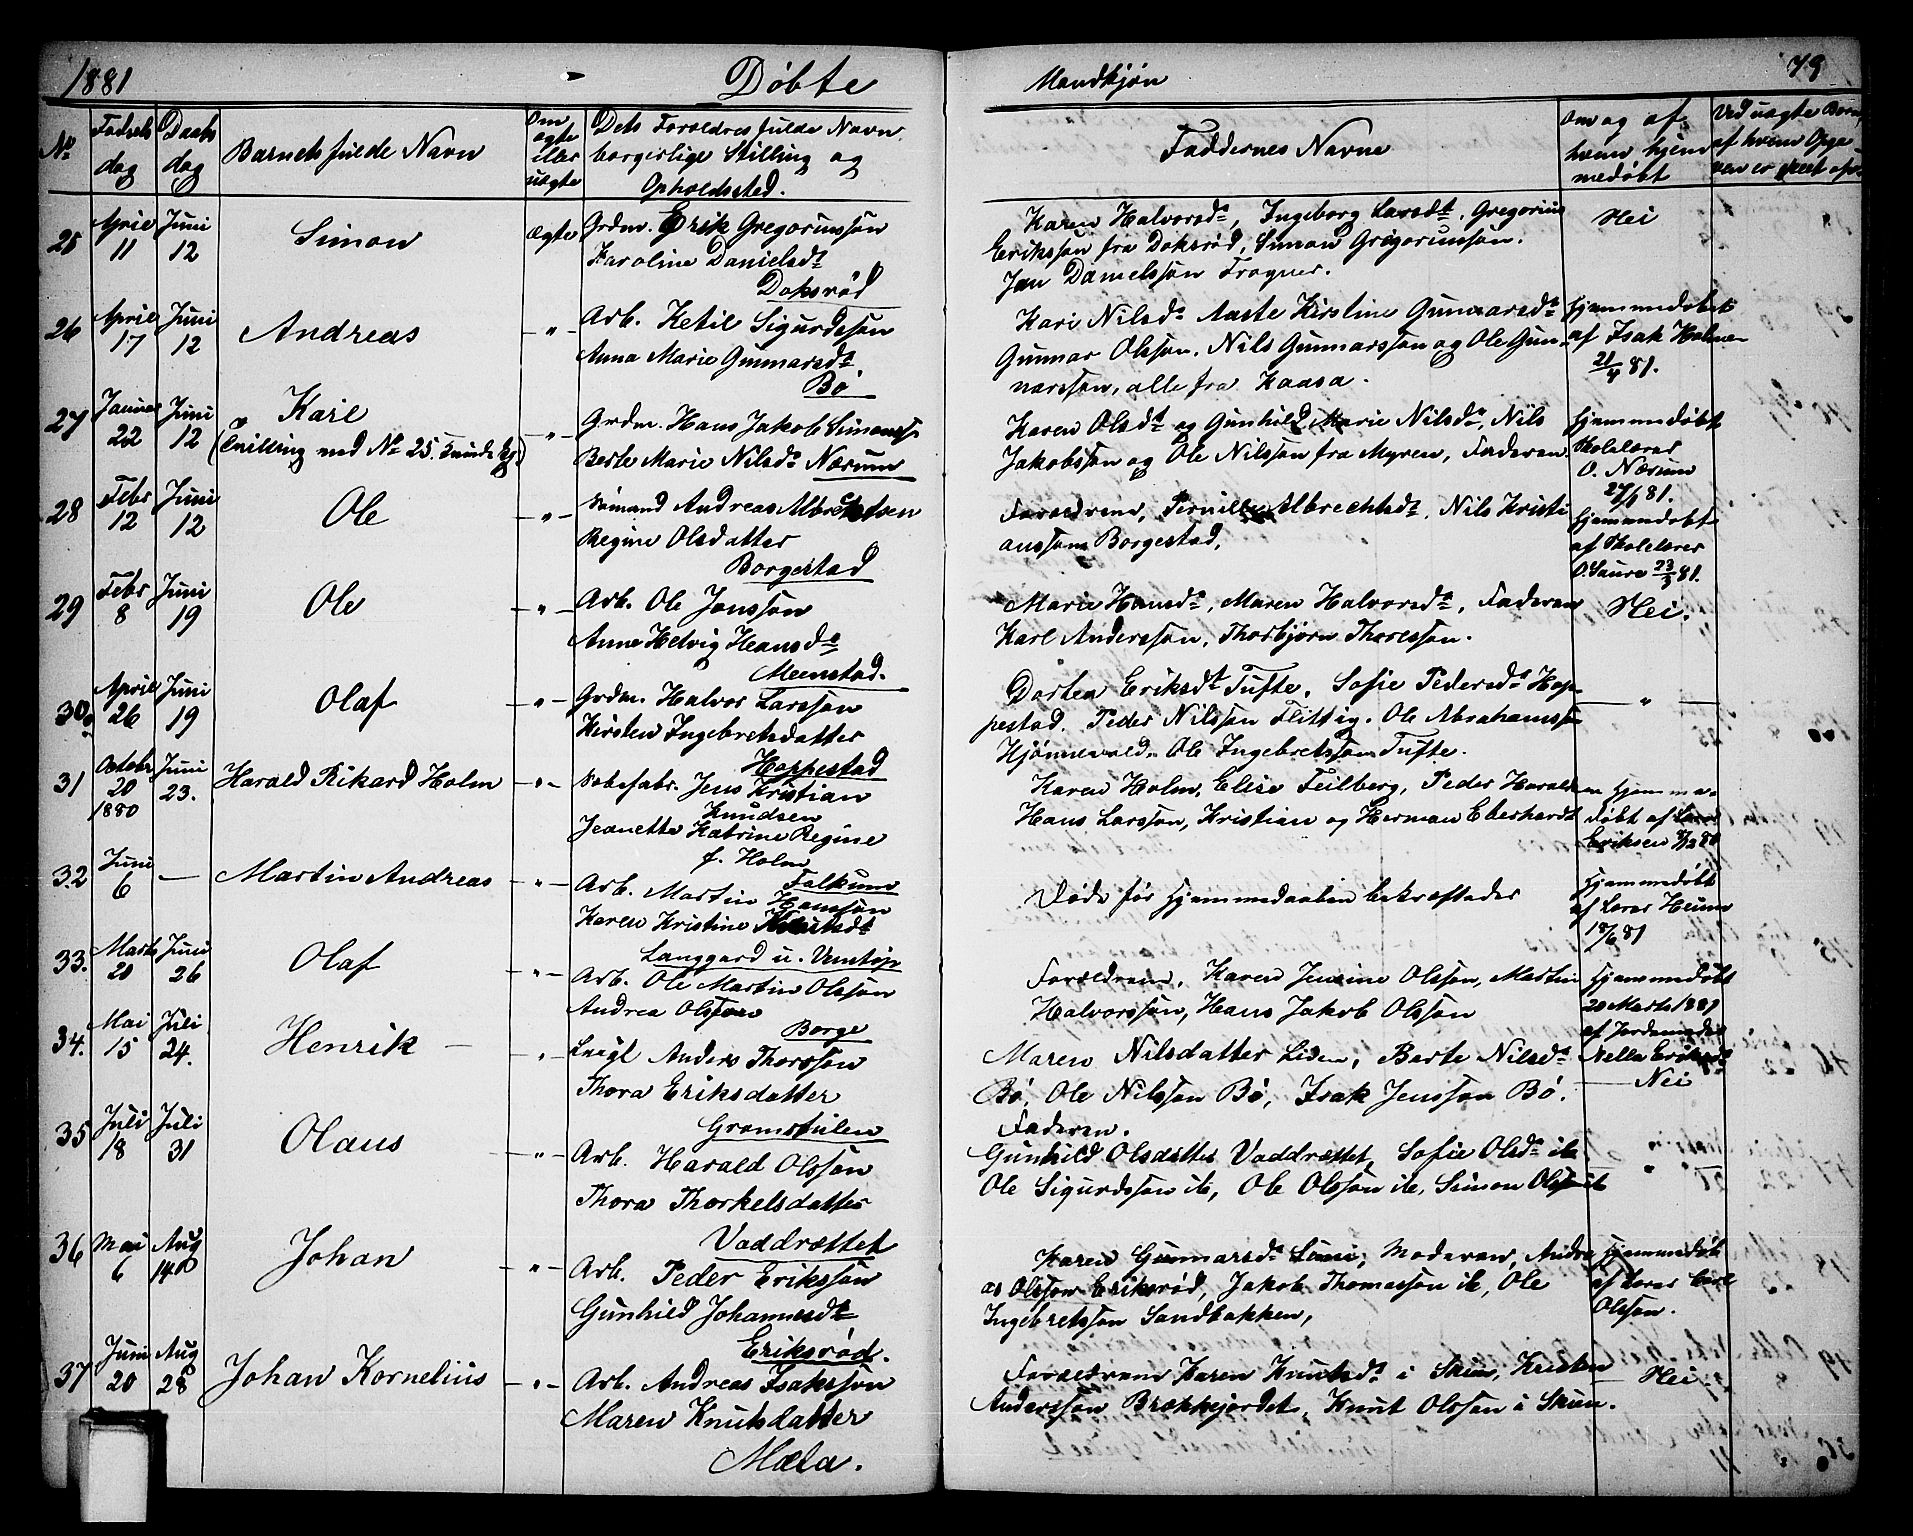 1881
Døbte
Mandkjøn
79
No
Fødsels dag
Daabs dag
Barnets fulde Navn
Om ægte eller uægte
Dets Forældres fulde Navn
borgerlige Stilling og
Opholdssted.
Faddernes Navne
Om og af
hvem hjem
medøbt
Ved uægte Børn
af hvem Opga
ven er
25
April 11
Juni 12
Simon
ægte
Grdm. Erik Gregoriussøn
Karoline Danielsdt
Doksrød
Karen Halvorsdt, Ingeborg Larsdt, Gregorius
Erikssøn fra Doksrød, Simon Grigoriussøn.
Jan Danielssøn Frogner.
Nei
26
April 17
Juni 12
Andreas
-"-
Arb. Ketil Sigurdssøn
Anna Marie Gunnarsdt.
Bø
Kari Nilsdt Aaste Kirstine Gunnarsdt
Gunnar Olssøn, Nils Gunnarssøn og Ole Gun-
narssøn, alle fra Kaasa.
Hjemmedøbt
af Isak Halvor
21/4 81.
27
Januar 22
Juni 12
Karl
(Tvilling med No 25. Kvindekj.)
-"-
Grdm. Hans Jakob Simonss.
Berte Marie Nilsdt Nærum
Karen Olsdt og Gunhild Marie Nilsdt, Nils
Jakobssøn og Ole Nilssøn fra Myren, Faderen
Hjemmedøbt
Skolelærer
O. Nærum
27/1 81.
28
Febr 12
Juni 12
Ole
-"-
Sømand Andreas Albretsen
Regine Olsdatter
Borgestad
Forældrene, Pernille Albrechtsdt, Nils Kristi
anssøn Borgestad,
Hjemmedøbt
af Skolelærer
O. Saure 23/3 81.
29
Febr 8
Juni 19
Ole
-"-
Arb. Ole Jenssøn
Anne Helvig Hansdt
Meenstad.
Marie Hansdt, Maren Halvorsdt, Faderen
Karl Anderssøn, Thorbjørn Thorssøn.
Nei.
30
April 26
Juni 19
Olaf
-"-
Grdm. Halvor Larssøn
Kirsten Ingebretsdatter
Hoppestad
Dorthea Eriksdt Tufte, Sofie Pedersdt Hop-
pestad, Peder Nilssøn Flittig, Ole Abrahamssøn
Hjønnevald, Ole Ingebretssøn Tufte.
— " —
31
Octobr 20 1880
Juni 23.
Harald Rikard Holm
-"-
Sæbefabr. Jens Kristian
Knudsen
Jeanette Katrine Regine
f. Holm
Falkum
Karen Holm, Elise Feilberg, Peder Haraldsen
Hans Larssøn, Kristian og Herman Eberhardt
Hjemme-
døbt af Lærer
Eriksen
32
Juni 6
—
Martin Andreas
-"-
Arb. Martin Hanssøn
Karen Kristine
Langgard u. Venstøp
Døde før Hjemmedaaben bekræftedes
Hjemmedøbt
af Lærer Heum
18/6 81
33.
Marts 20
Juni 26
Olaf
-"-
Arb. Ole Martin Olssøn
Andrea Olssøn
Borge
Forældrene, Karen Jensine Olssøn, Martin
Halvorssøn, Hans Jakob Olssøn
Hjemmedøbt
20 Marts 1881
af Jordemoder
Nella Eriksdt
34.
Mai 15
Juli 24.
Henrik —
-"-
Leigl Anders Thorssøn
Thora Eriksdatter
Gromstulen
Maren Nilsdatter Lien, Berte Nilsdt
Bø, Ole Nilssøn Bø, Isak Jenssøn Bø.
Faderen.
— Nei
35
Juli 18
Juli 31
Olaus
-"-
Arb. Harald Olssøn
Thora Thorkelsdatter
Vaddrættet
Gunhild Olsdatter Vaddrættet, Sofie Olsdt ib.
Ole Sigurdssøn ib, Ole Olssøn ib, Simon Olssøn ib
"
36
Mai 6
Aug 14
Johan
-"-
Arb. Peder Erikssøn
Gunhild Johannesdt
Eriksrød.
Karen Gunnarsdt Luni, Moderen, Andre
as Olssøn Eriksrød, Jakob Thomassøn ib, Ole
Ingebretssøn Sandbakken,
Hjemmedøbt
af Lærer Carl
Olssøn.
37
Juni 20
Aug 28
Johan Kornelius
-"-
Arb. Andreas Isakssøn
Maren Knutsdatter
Mæla.
Forældrene Karen Knutsdt i Skien, Kristen
Anderssøn Brækkejordet, Knut Olssøn i Skien.
Nei.